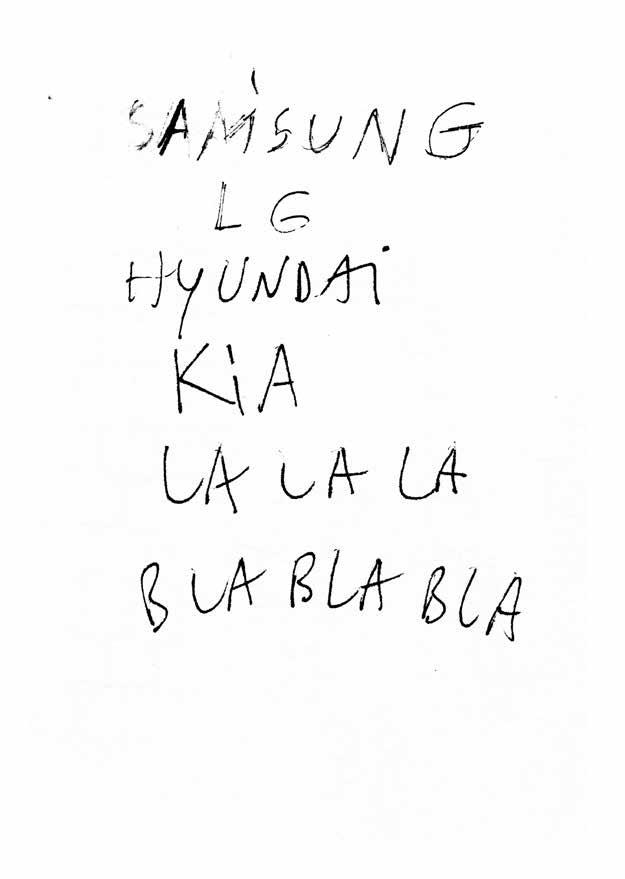 SAMSUNG
LG
HYUNDAi
KiA
LA LA LA
BLA BLA BLA